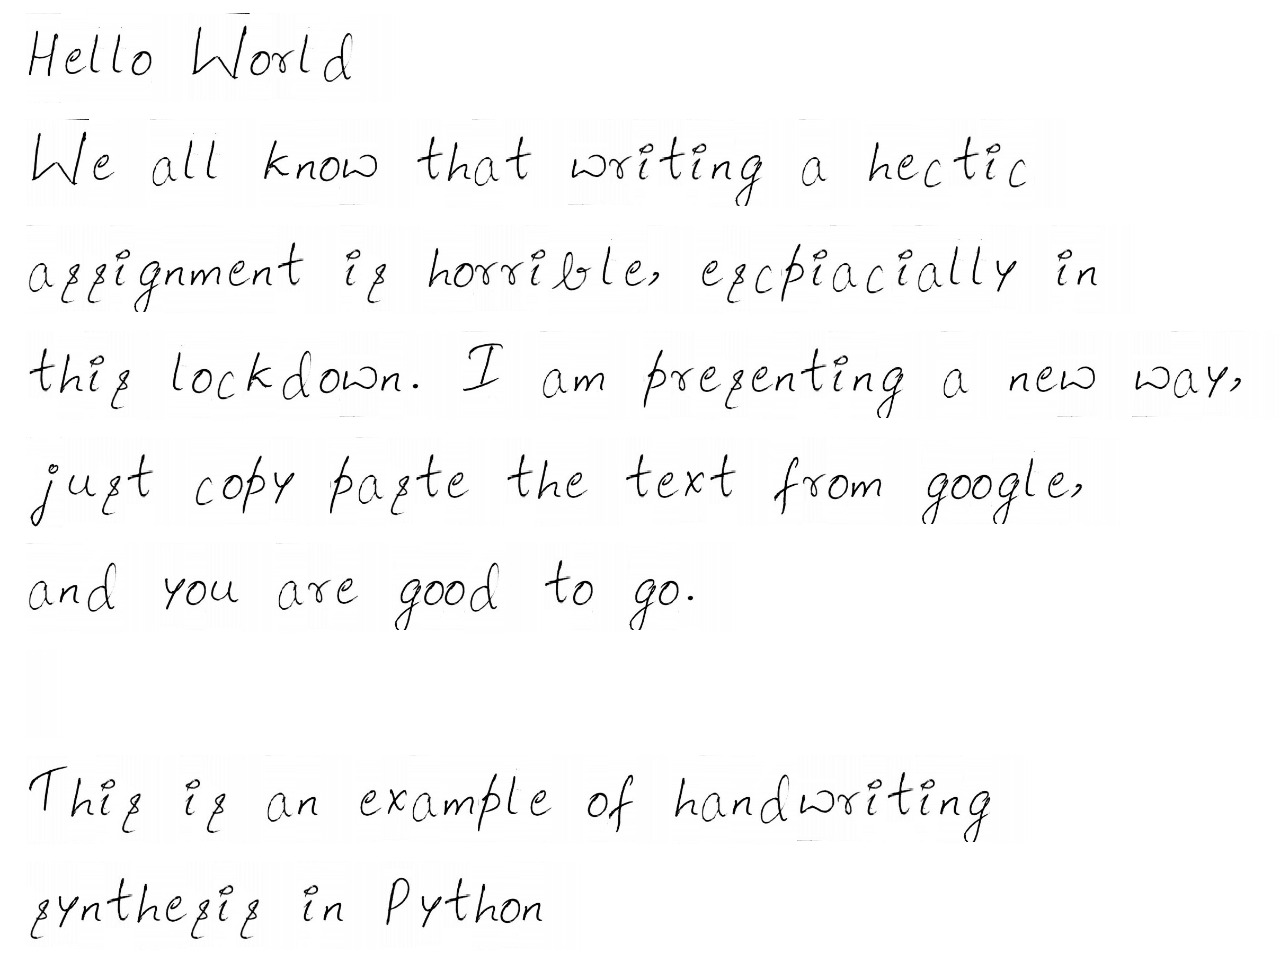 Hello World
We all know that writing a hectic
assignment is horrible, escpiacially in
this lockdown. I am presenting a new way,
just copy paste the text from google,
and you are good to go.
This is an example of handwriting
synthesis in Python